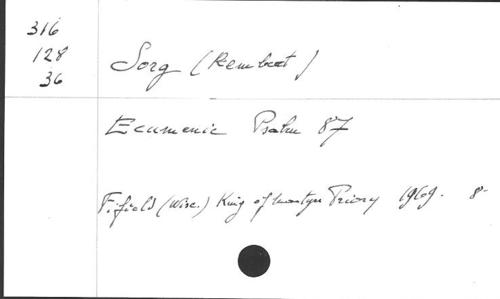 316
128
36
Sorg (Rembert)
Ecumenic Psalm 87
Fifield (Wisc.) King of Martyrs Priory 1969. 8-